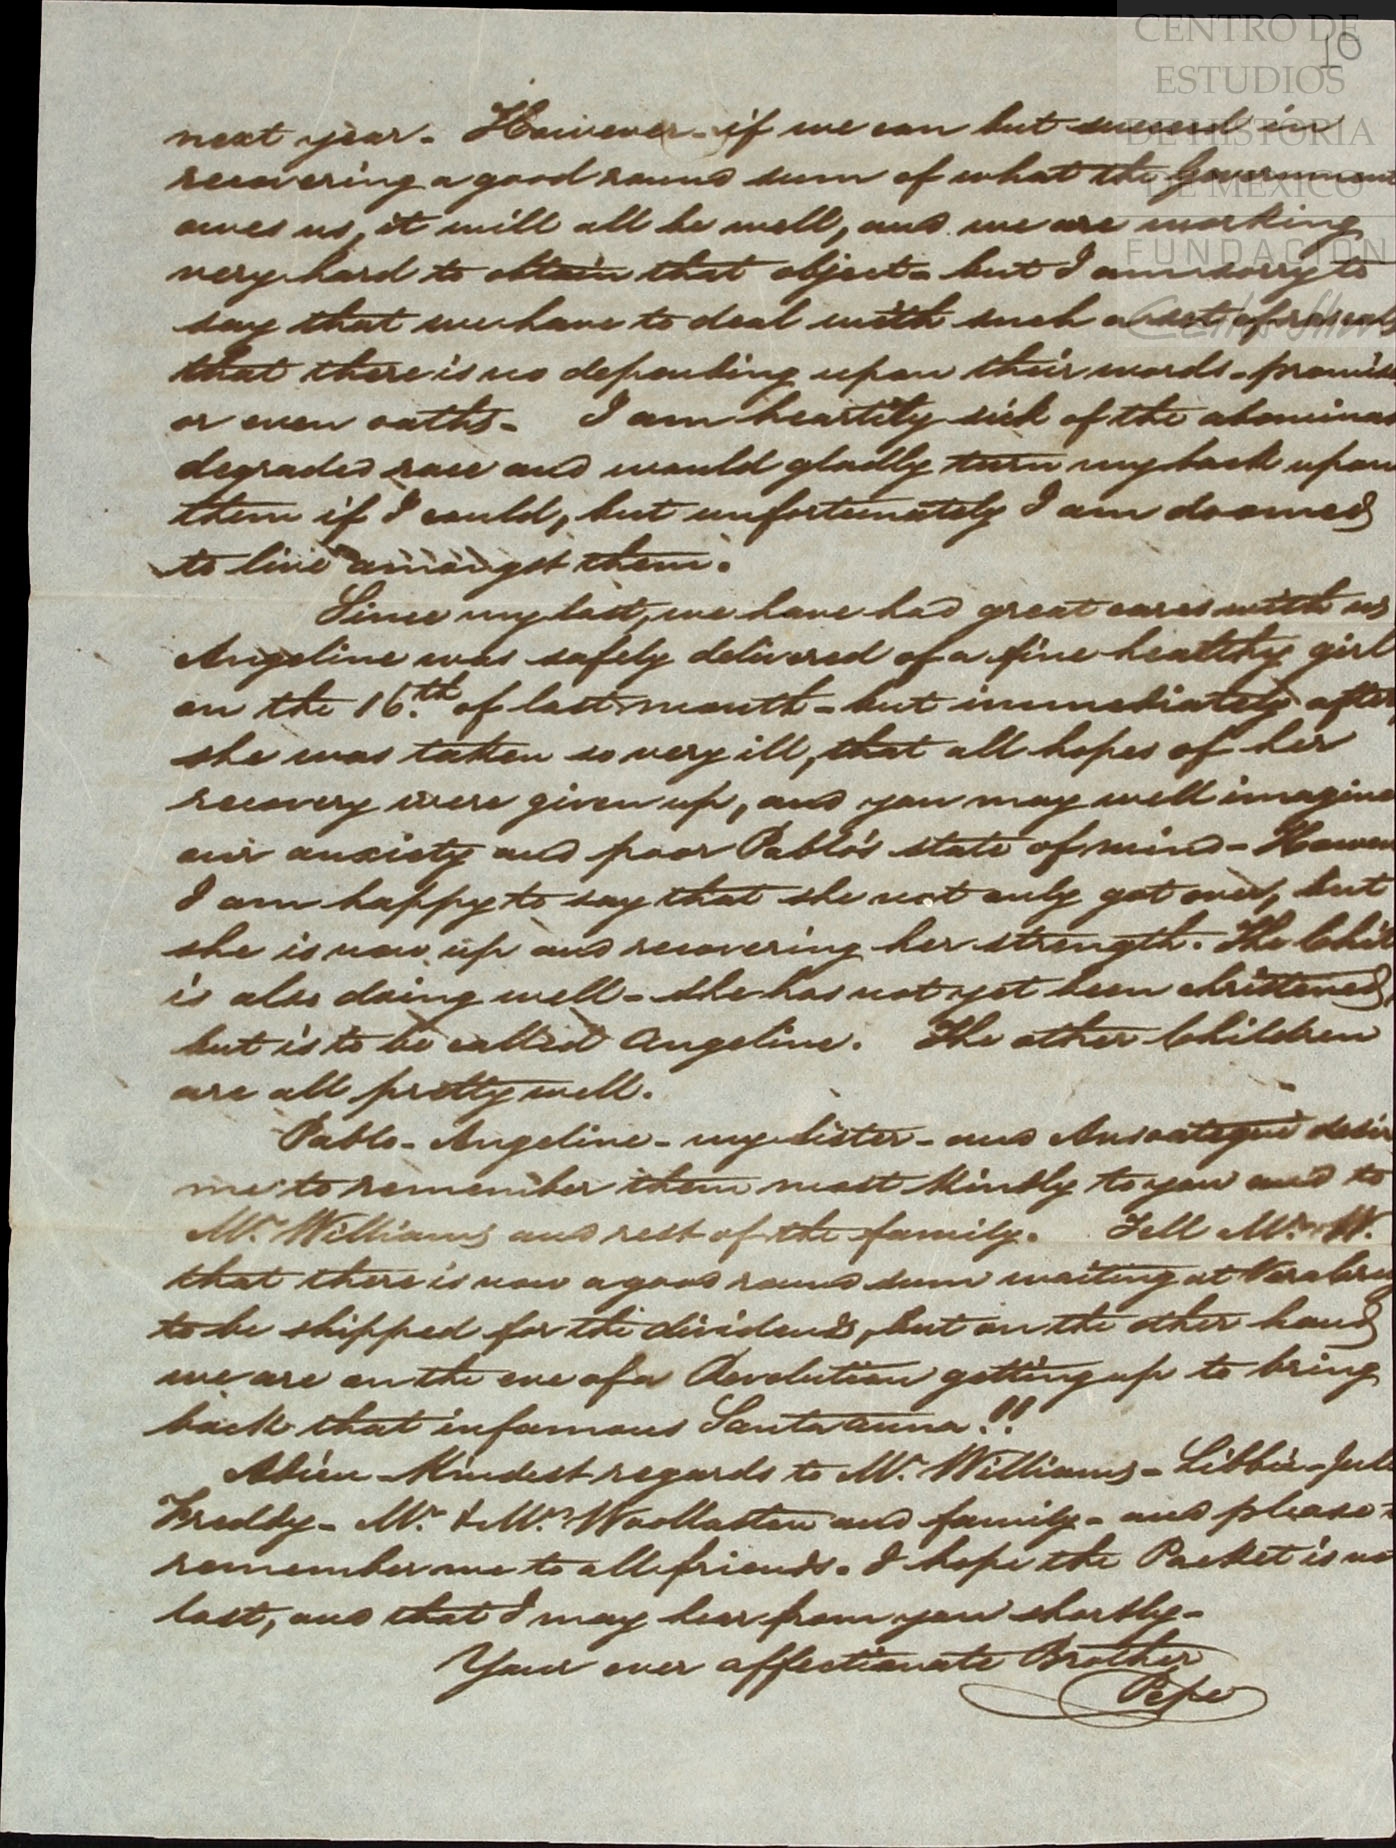 CENTRO DE
ESTUDIOS
DE HISTORIA
DE MEXICO
FUNDACIÓN
10
next year. However - if we can but succeed in
recovering a good round sum of what the Government
owes us, it will all be well, and we are working
very hard to obtain that object - but I am sorry to
say that we have to deal with such a set of rascals
that there is no depending upon their words - promise
or even oaths - I am heartily sick of the abomina
degraded race and would gladly turn my back upon
them if I could, but unfortunately I am doomed
to live amongst them.
Since my last, we have had great cares with us
Angeline was safely delivered of a fine healthy girl
on the 16th of last month - but immediately after
she was taken so very ill, that all hopes of her
recovery were given up, and you may well imagine
our anxiety and poor Pablo's state of mind - Howev
I am happy to say that she not only got over, but
she is now up and recovering her strength. The Chil
is also doing well - she has not yet been christened,
but is to be called Angeline. The other Children
are all pretty well.
Pablo - Angeline - my Sister - and Ansoategui desir
me to remember them most kindly to you and to
Mr. Williams and rest of the family. Tell Mr. W.
that there is now a good round sum waiting at Vera Cruz
to be shipped for the dividends, but on the other hand
we are on the eve of a Revolution getting up to bring
back that infamous Santa anna!!
Adieu - Kindest regards to Mr. Williams - Libbie - Jul
Freddy - Mr. & Mrs. Woollaston and family - and please
remember me to all friends. I hope the Packet is no
lost, and that I may hear from you shortly -
Your ever affectionate Brother
Pepe